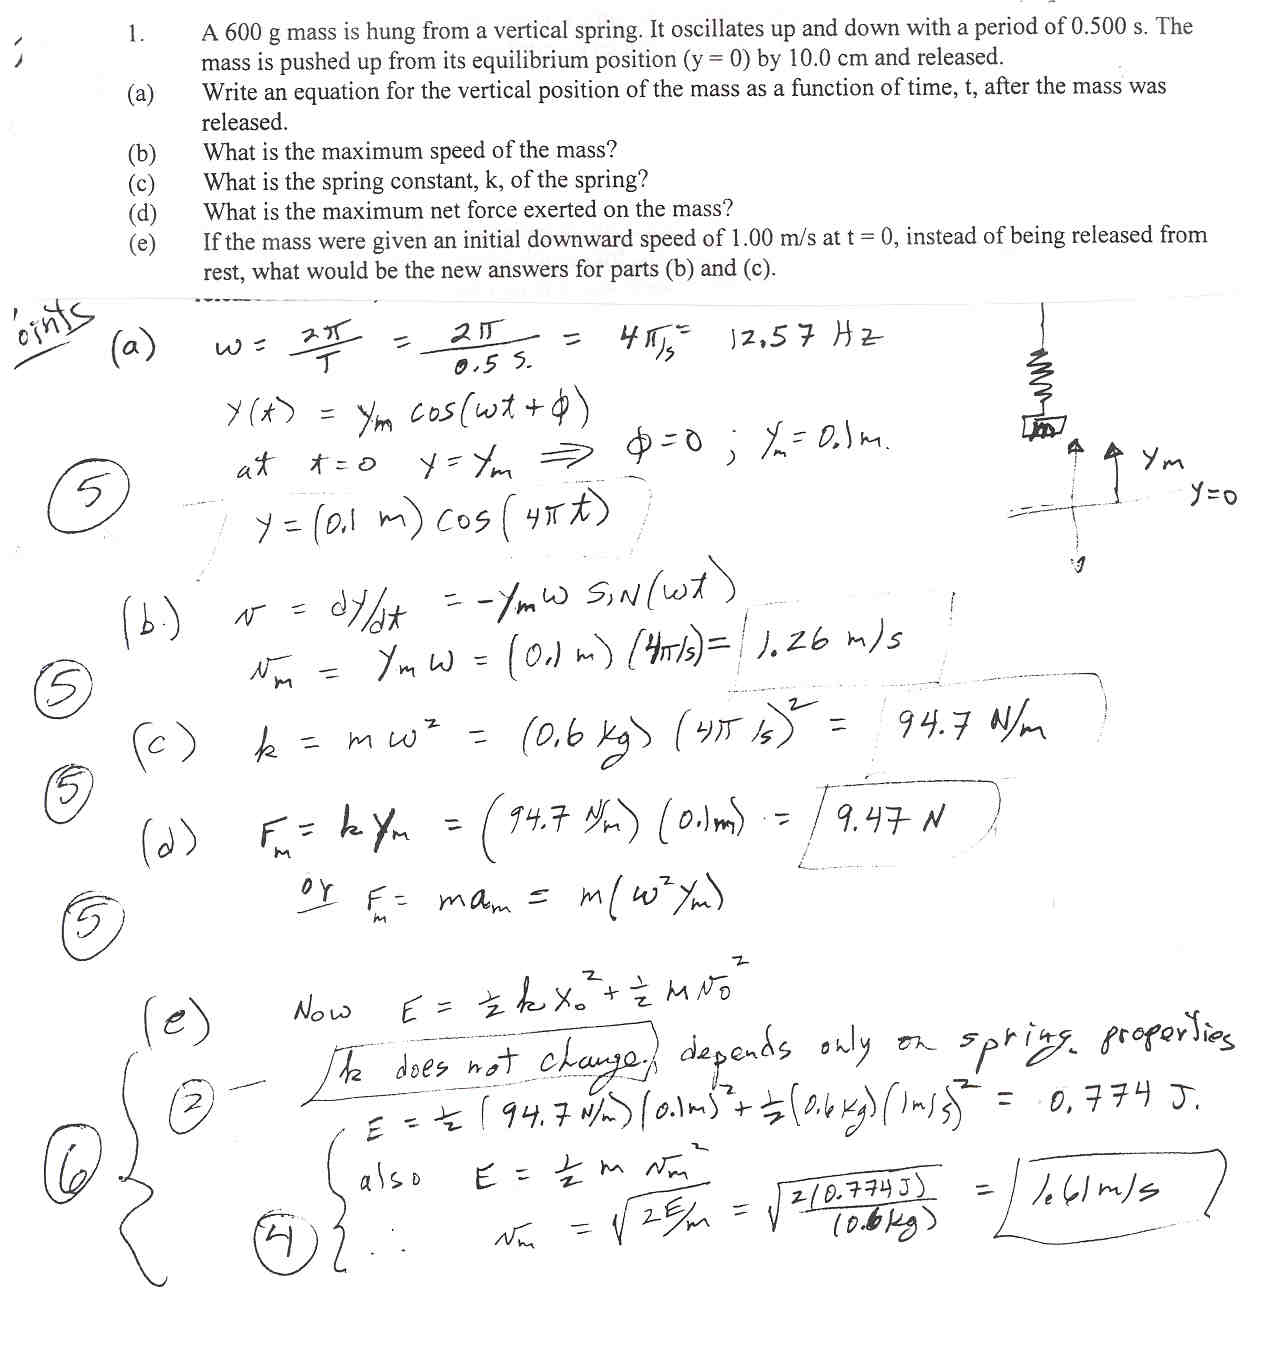 1. A 600 g mass is hung from a vertical spring. It oscillates up and down with a period of 0.500 s. The
mass is pushed up from its equilibrium position (y = 0) by 10.0 cm and released.
(a) Write an equation for the vertical position of the mass as a function of time, t, after the mass was
released.
(b) What is the maximum speed of the mass?
(c) What is the spring constant, k, of the spring?
(d) What is the maximum net force exerted on the mass?
(e) If the mass were given an initial downward speed of 1.00 m/s at t = 0, instead of being released from
rest, what would be the new answers for parts (b) and (c).
oints
(a) ω = 2π/T = 2π/0.5 s. = 4π/s = 12.57 Hz
y(t) = ym cos(ωt + φ)
at t=0 y = ym ⇒ φ=0 ; ym = 0.1 m.
m
ym
y=0
5
y = (0.1 m) cos(4πt)
(b.) v = dy/dt = -ymω sin(ωt)
5
vm = ym ω = (0.1 m) (4π/s) = 1.26 m/s
(c) k = mω² = (0.6 kg) (4π /s)² = 94.7 N/m
5
(d) Fm = k ym = (94.7 N/m) (0.1m) = 9.47 N
or Fm = mam = m(ω²ym)
5
(e) Now E = ½ k x₀² + ½ m v₀²
2 — k does not change. depends only on spring properties
E = ½ (94.7 N/m)(0.1m)² + ½(0.6 kg)(1m/s)² = 0.774 J.
6
also E = ½ m vm²
4 ∴ vm = √2E/m = √2(0.774J)/(0.6kg) = 1.61 m/s